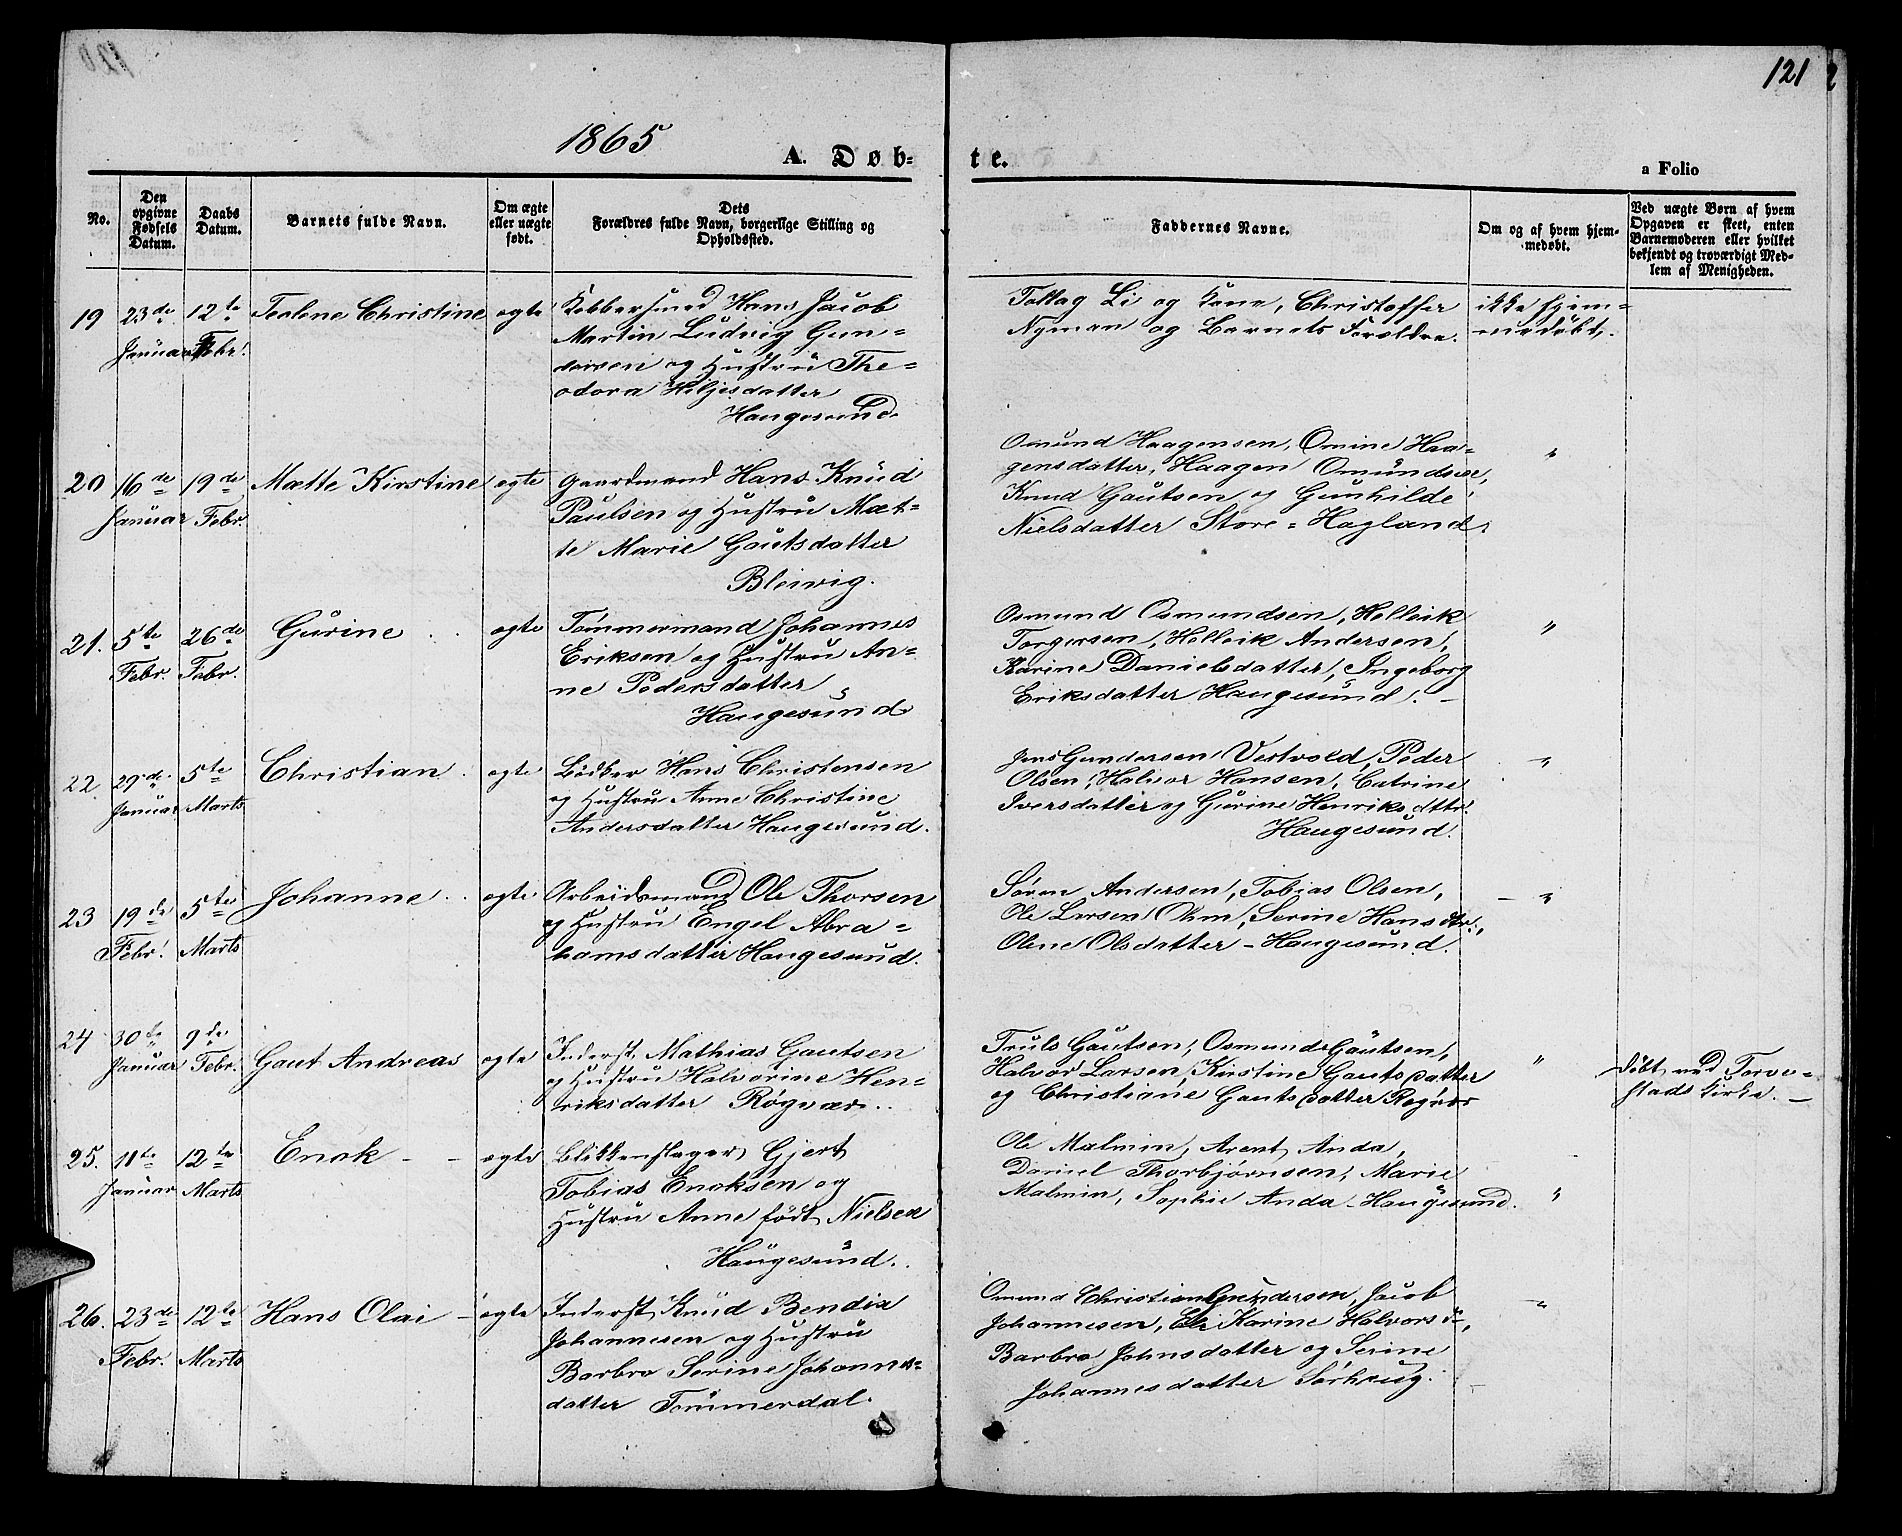 121
1865
A. Døb-
te.
a Folio
No.
Den
opgivne
Fødsels
Datum.
Daabs
Datum.
Barnets fulde Navn.
Om ægte
eller uægte
født.
Dets
Forældres fulde Navn, borgerlige Stilling og
Opholdssted.
Faddernes Navne.
Om og af hvem hjem-
medøbt.
Ved uægte Børn af hvem
Opgaven er skeet, enten
Barnemoderen eller hvilket
bekjendt og troværdigt Med-
lem af Menigheden.
19
23de
Januar
12te
Febr.
Teoline Christine
ægte
Kobbersmed Hans Jacob
Martin Ludvig Gun-
dersen og Hustru The-
odora Hiljesdatter
Haugesund.
Tollag Li og Kone, Christoffer
Nyman og Barnets Forældre.
ikke hjem-
medøbt.
20
16de
Januar
19de
Febr.
Mætte Kirstine
ægte
Gaardmand Hans Knud
Paulsen og Hustru Mæt-
te Marie Gautsdatter
Bleivig.
Osmund Haagensen, Omine Haa-
gensdatter, Haagen Omundsen,
Knud Gautsen og Gunhilde
Nielsdatter Store-Hagland.
"
21.
5te
Febr.
26de
Febr.
Gurine
ægte
Tømmermand Johannes
Eriksen og Hustru An-
ne Pedersdatter
Haugesund
Osmund Osmundsen, Helleik
Torgersen, Helleik Andersen,
Karine Danielsdatter, Ingeborg
Eriksdatter Haugesund. -
"
22.
29de
Januar
5te
Marts
Christian
ægte
Bødker Hans Christensen
og Hustru Anne Christine
Andersdatter Haugesund.
Jens Gundersen Vestvold, Peder
Olsen, Halvor Hansen, Catrine
Iversdatter og Gurine Henriksdttr.
Haugesund.
"
23
19de
Febr.
5te
Marts
Johanne
ægte
Arbeidsmand Ole Thorsen
og Hustru Engel Abra-
hamsdatter Haugesund.
Søren Andersen, Tobias Olsen,
Ole Larsen Ohm, Serine Hansdtr.,
Oline Olsdatter - Haugesund.
"
24
30te
Januar
9de
Febr.
Gaut Andreas
ægte
Inderst Mathias Gautsen
og Hustru Halvorine Hen-
riksdatter Røgvær.
Truls Gautsen, Osmund Gautsen,
Halvor Larsen, Kirstine Gautsdatter
og Christiane Gautsdatter Røgvær
"
Døbt ved Torve-
stads Kirke. -
25.
11te
Januar
12te
Marts
Enok - -
ægte
Blikkenslager Gjert
Tobias Enoksen og
Hustru Anne født Nielsen
Haugesund.
Ole Malmin, Arent Anda,
Daniel Thorbjørnsen, Marie
Malmin, Sophie Anda - Haugesund.
"
26.
23de
Febr.
12te
Marts
Hans Olai -
ægte
Inderst Knud Bendix
Johannesen og Hustru
Barbro Serine Johannes-
datter Tømmerdal.
Omund Christian Gundersen, Jacob
Johannesen, Karine Halvorsd.,
Barbro Johnsdatter og Serine
Johannesdatter Sørhaug.
"